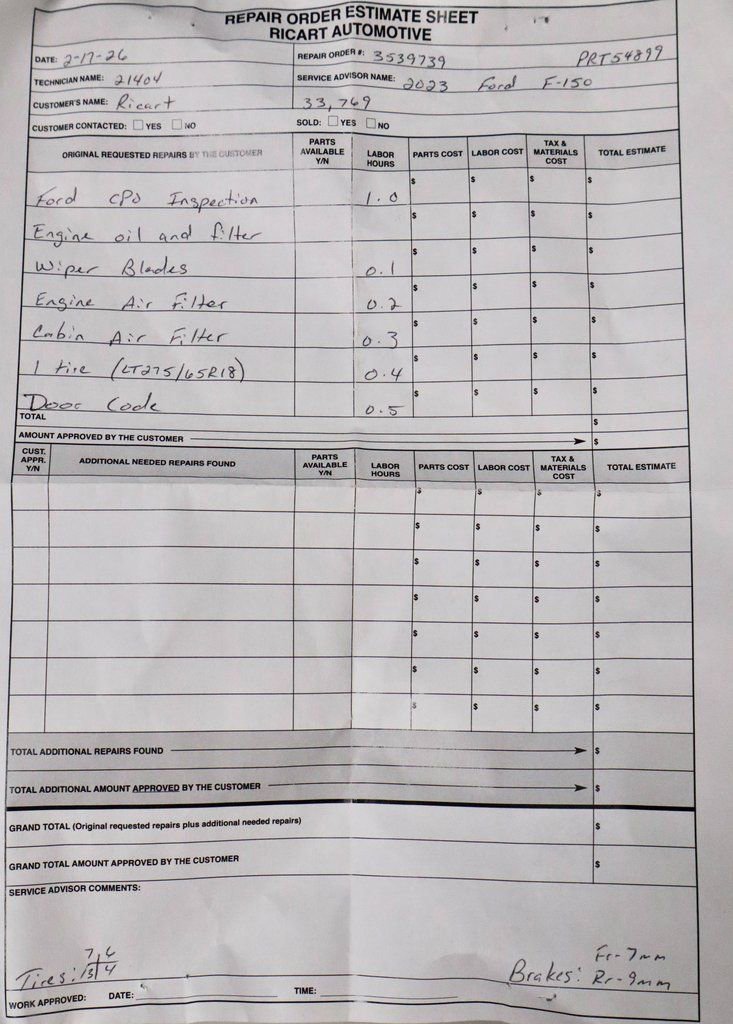 REPAIR ORDER ESTIMATE SHEET
RICART AUTOMOTIVE
DATE: 2-17-26 REPAIR ORDER #: 3539739 PRT54899
TECHNICIAN NAME: 21404 SERVICE ADVISOR NAME: 2023 Ford F-150
CUSTOMER'S NAME: Ricart 33,769
CUSTOMER CONTACTED: YES NO SOLD: YES NO
ORIGINAL REQUESTED REPAIRS BY THE CUSTOMER PARTS AVAILABLE Y/N LABOR HOURS PARTS COST LABOR COST TAX & MATERIALS COST TOTAL ESTIMATE
Ford CPO Inspection 1.0 $ $ $ $
Engine oil and filter $ $ $ $
Wiper Blades 0.1 $ $ $ $
Engine Air Filter 0.2 $ $ $ $
Cabin Air Filter 0.3 $ $ $ $
1 tire (LT275/65R18) 0.4 $ $ $ $
Door Code 0.5 $ $ $ $
TOTAL $
AMOUNT APPROVED BY THE CUSTOMER $
CUST. APPR. Y/N ADDITIONAL NEEDED REPAIRS FOUND PARTS AVAILABLE Y/N LABOR HOURS PARTS COST LABOR COST TAX & MATERIALS COST TOTAL ESTIMATE
$ $ $ $
$ $ $ $
$ $ $ $
$ $ $ $
$ $ $ $
$ $ $ $
$ $ $ $
TOTAL ADDITIONAL REPAIRS FOUND $
TOTAL ADDITIONAL AMOUNT APPROVED BY THE CUSTOMER $
GRAND TOTAL (Original requested repairs plus additional needed repairs) $
GRAND TOTAL AMOUNT APPROVED BY THE CUSTOMER $
SERVICE ADVISOR COMMENTS:
7 6 Fr-7mm
Tires: 4 Brakes: Rr-9mm
WORK APPROVED: DATE: TIME: